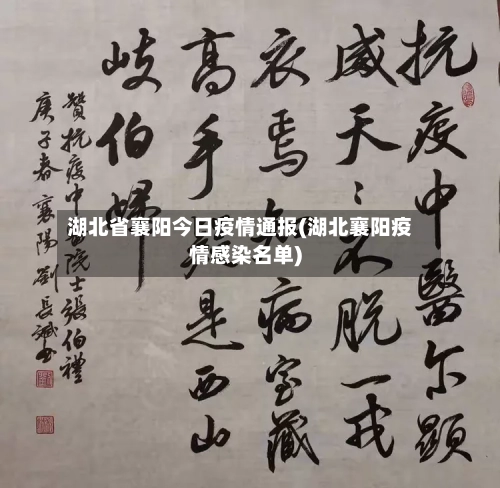 抗疫中醫尔顯
威天〻不脱一戎
衣焉知病室藏
高手疑是西山
岐伯歸
贊抗疫中醫院士張伯禮
庚子春襄陽劉長書
湖北省襄阳今日疫情通报(湖北襄阳疫
情感染名单)